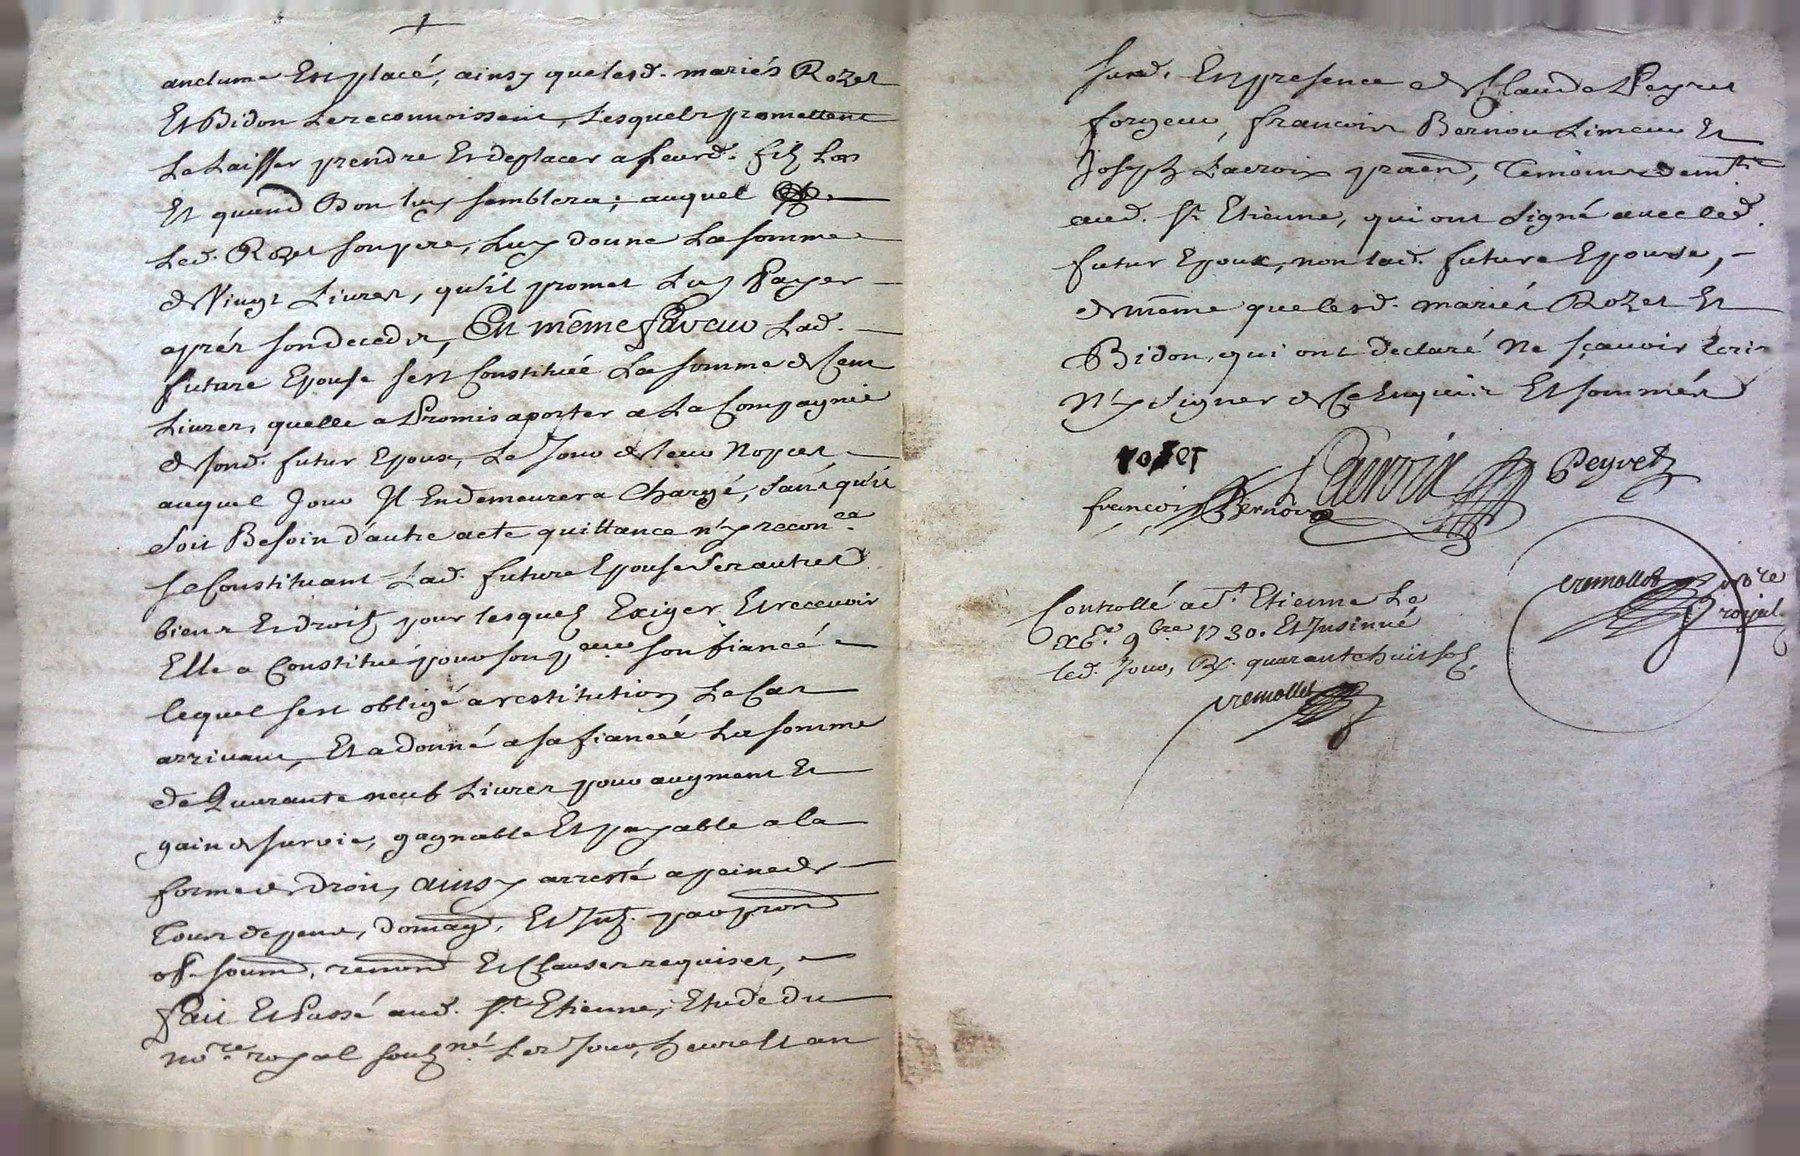 anclume Est placé, ainsy que lesd. mariés Rozet
Et Bidon Le reconnoissent, Lesquels promettent
Le Laisser prendre Et deplacer a leurd. fils Lors
Et quand Bon luy semblera; auquel
Led. Rozet son pere, Luy donne La somme
de Vingt Livres, qu'il promet Luy Payer
aprés son decedz, En même faveur Lad.
future Epouse s'est Constituée La somme de Cent
Livres, quelle a Promis aporter a La Compagnie
de sond. futur Epoux, Le Jour de leur Nopces
auquel Jour Il En demeurera Chargé, sans qu'il
soit Besoin d'autre acte quittance n'y recon.ce
se Constituant Lad. future Epouse ses autres
biens Et droits pour lesquels Exiger Et recevoir
Elle a Constitué pour son pr.eur son fiancé
lequel s'est obligé a restitution Le Cas
arrivant, Et a donné a sa fiancée La somme
de Quarante neuf Livres pour augment Et
gain de survie, gagnable Et payable a la
forme de droit, ainsy arresté a peine de
Tous depens, domag. Et Int. par prom.
obl. soum. renon. Et Clauses requises,
fait Et Passé aud. St. Etienne, Etude du
no.re royal souss.né Les Jour, heure Et an
susd. En presence de Claude Peyret
forgeur, francois Bernou Limeur Et
Joseph Lacroix prati.n, Témoins dem.ts
aud. St. Etienne, qui ont signé avec led.
futur Epoux, non lad. future Epouse,
de même que lesd. mariés Rozet Et
Bidon, qui ont declaré Ne sçavoir Ecrire
N'y signer de Ce Enquis Et sommés
rozet
Lacroix
Peyret
francois Bernou
Controllé a St. Etienne Le
9bre 1730. Et Insinué
led. Jour, R. quarante huit sols.
cremollet
cremollet no.re
royal